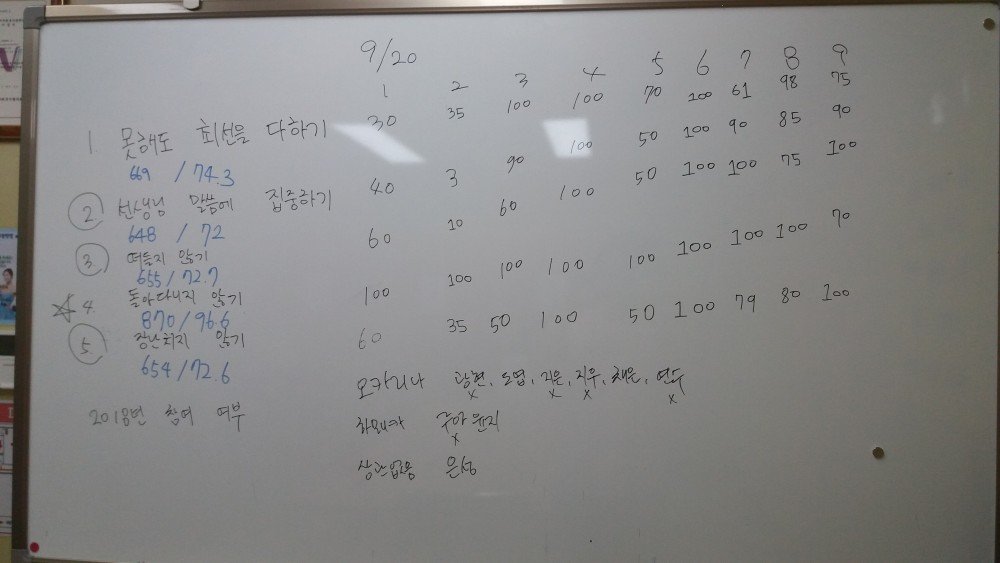 9/20
1 2 3 4 5 6 7 8 9
1. 못해도 최선을 다하기 30 35 100 100 70 100 61 98 75
669 / 74.3
2. 선생님 말씀에 집중하기 40 3 90 100 50 100 90 85 90
648 / 72
3. 떠들지 않기 60 10 60 100 50 100 100 75 100
655 / 72.7
☆ 4. 돌아다니지 않기 100 100 100 100 100 100 100 100 70
870 / 96.6
5. 장난치지 않기 60 35 50 100 50 100 79 80 100
654 / 72.6
오카리나 광현, 도엽, 지은, 지우, 채은, 연우
x x x x
2018년 참여 여부
하모니카 윤지
x
상관없음 은성